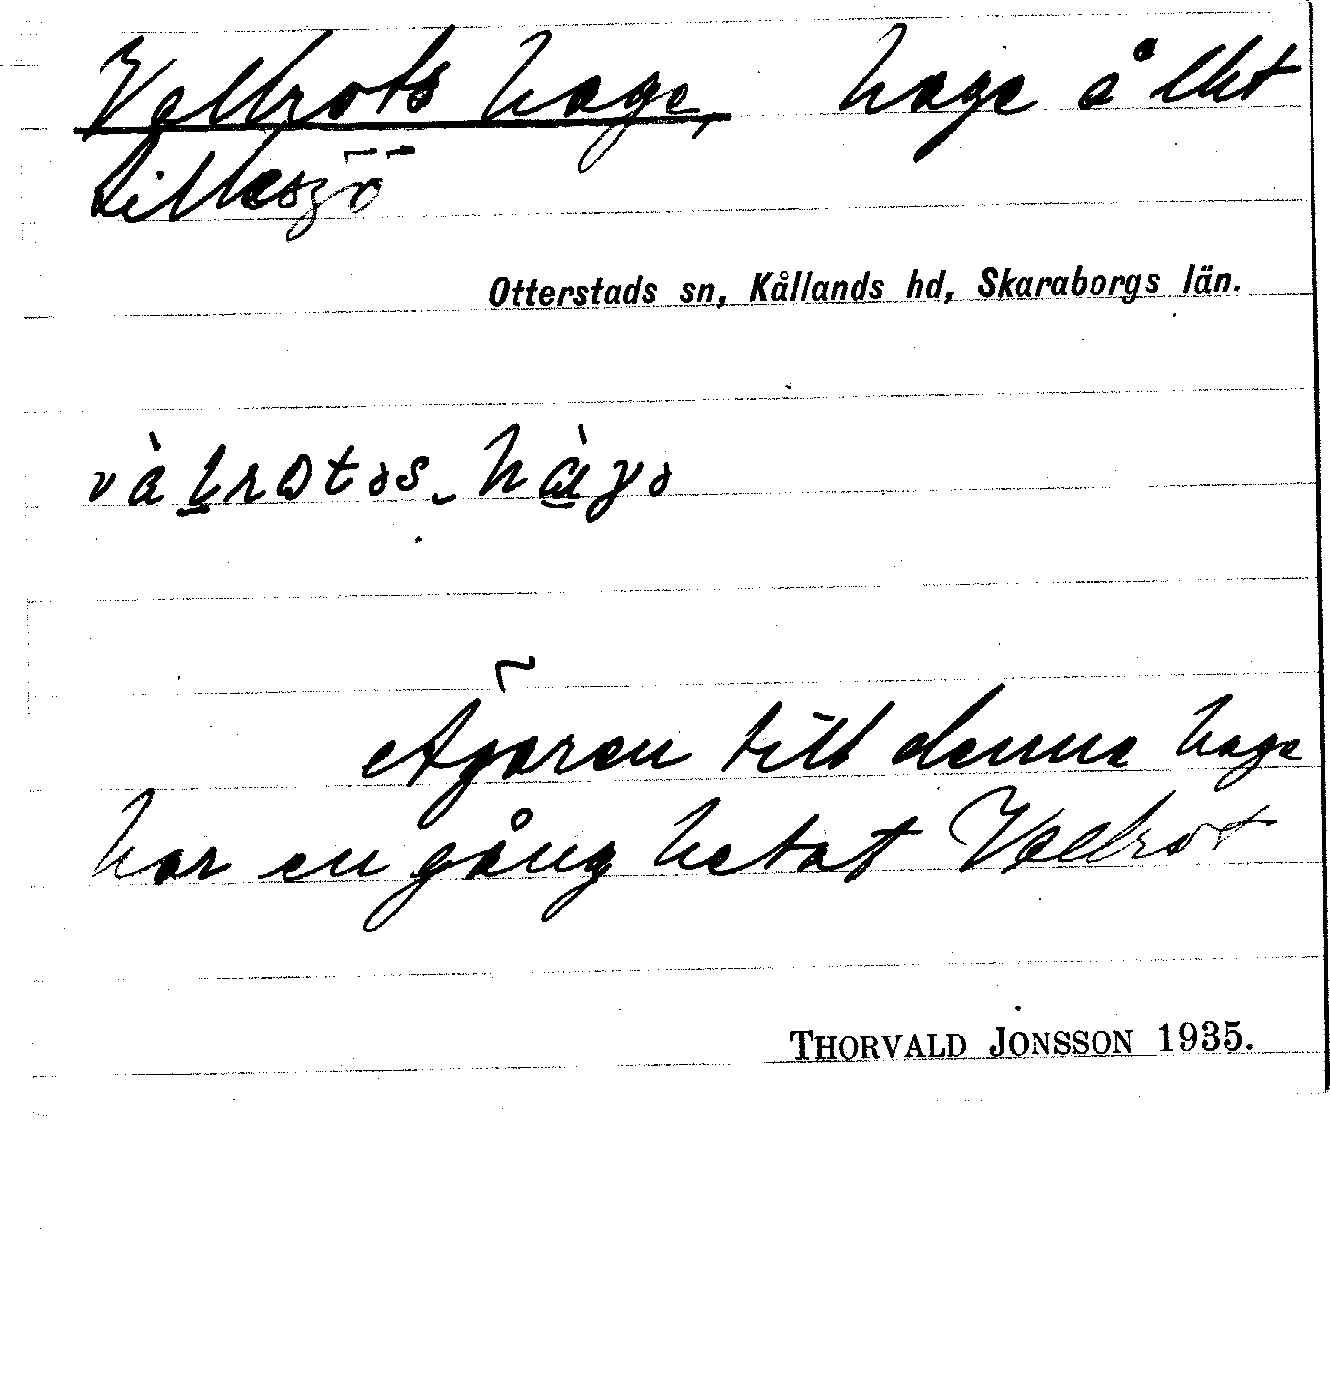 Vallrots hage, hage å Ekt
Lillasjö
Otterstads sn, Kållands hd, Skaraborgs län.
và l̠rotəs‿hàγə
Ägaren till denna hage
har en gång hetat Vallrot
THORVALD JONSSON 1935.